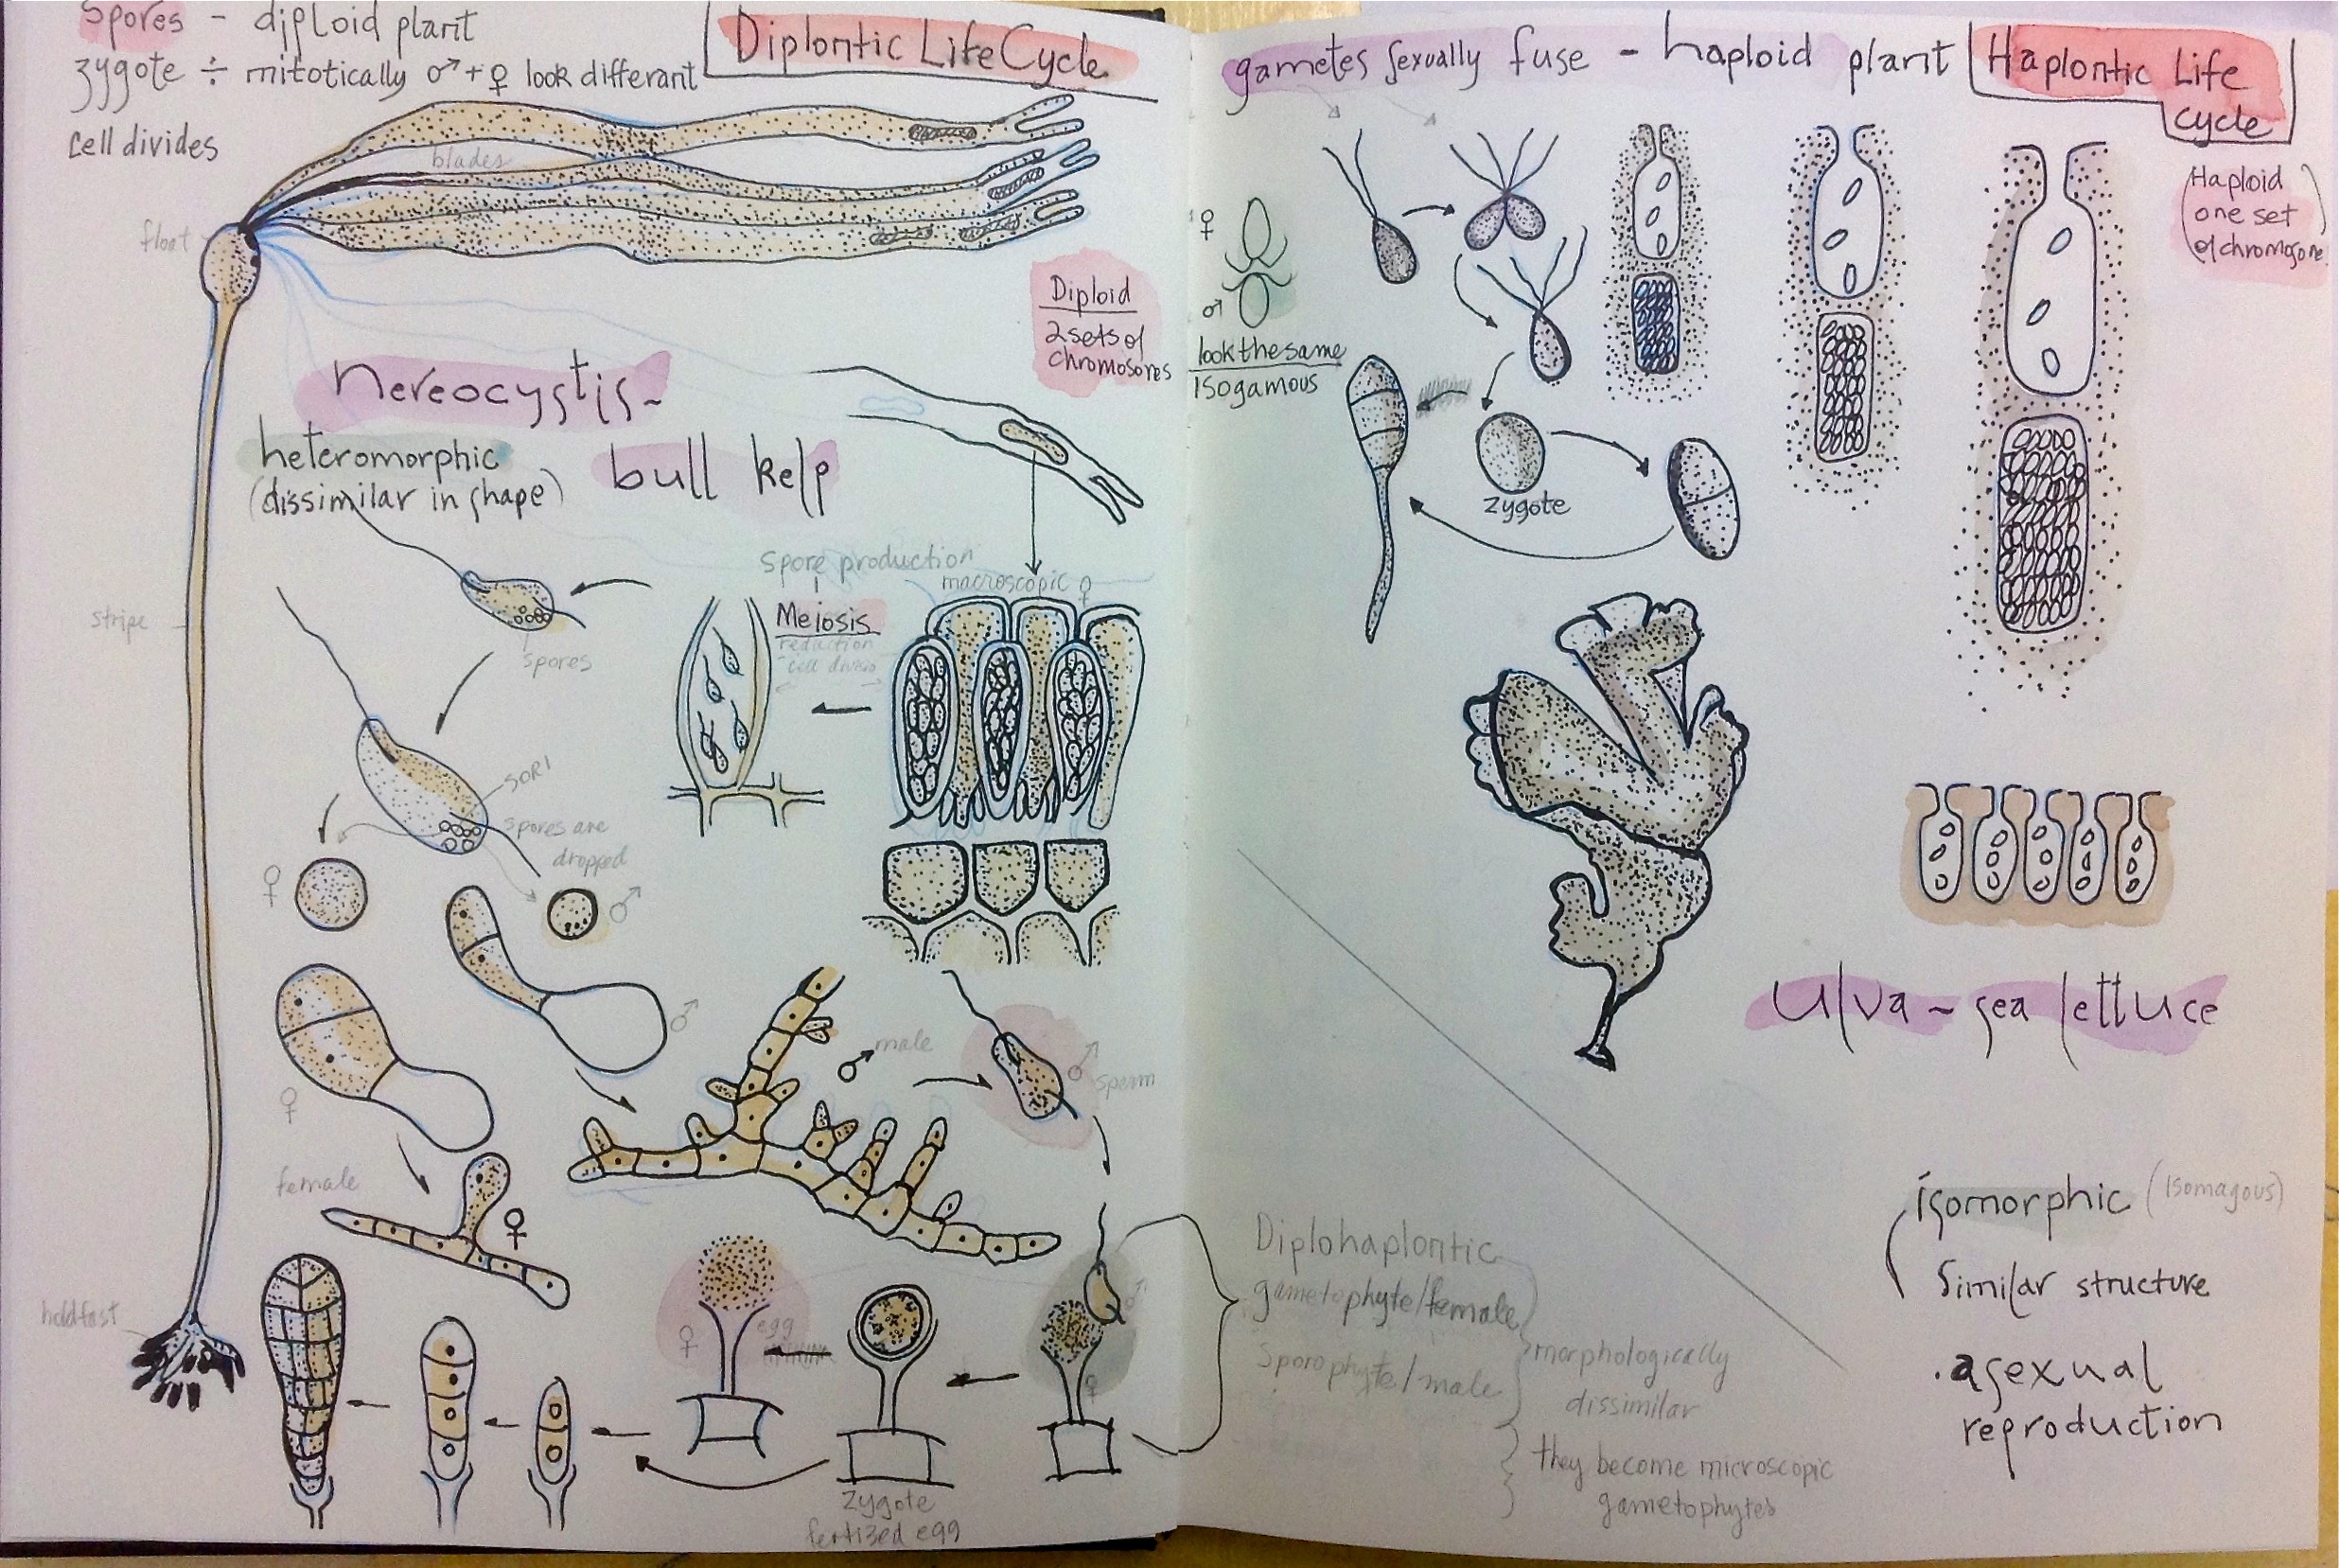 Spores - diploid plant
zygote ÷ mitotically ♂+♀ look differant
cell divides
Diplontic Life Cycle
blades
float
Diploid
2 sets of
chromosores
nereocystis-
heteromorphic
(dissimilar in shape)
bull kelp
spore production
macroscopic ♀
Meiosis
reduction
stripe
spores
SORI
spores are
dropped
♀
♂
♂
♀
♂ male
♂
sperm
female
♀
holdfast
♀
egg
♂
♀
zygote
fertized egg
gametes sexually fuse - haploid plant
Haplontic Life
cycle
(Haploid
one set
of chromosone)
♀
♂
look the same
isogamous
zygote
Ulva - sea lettuce
isomorphic (isomagous)
similar structure
.asexual
reproduction
Diplohaplontic
gametophyte/female
Sporophyte/male
morphologically
dissimilar
they become microscopic
gametophytes